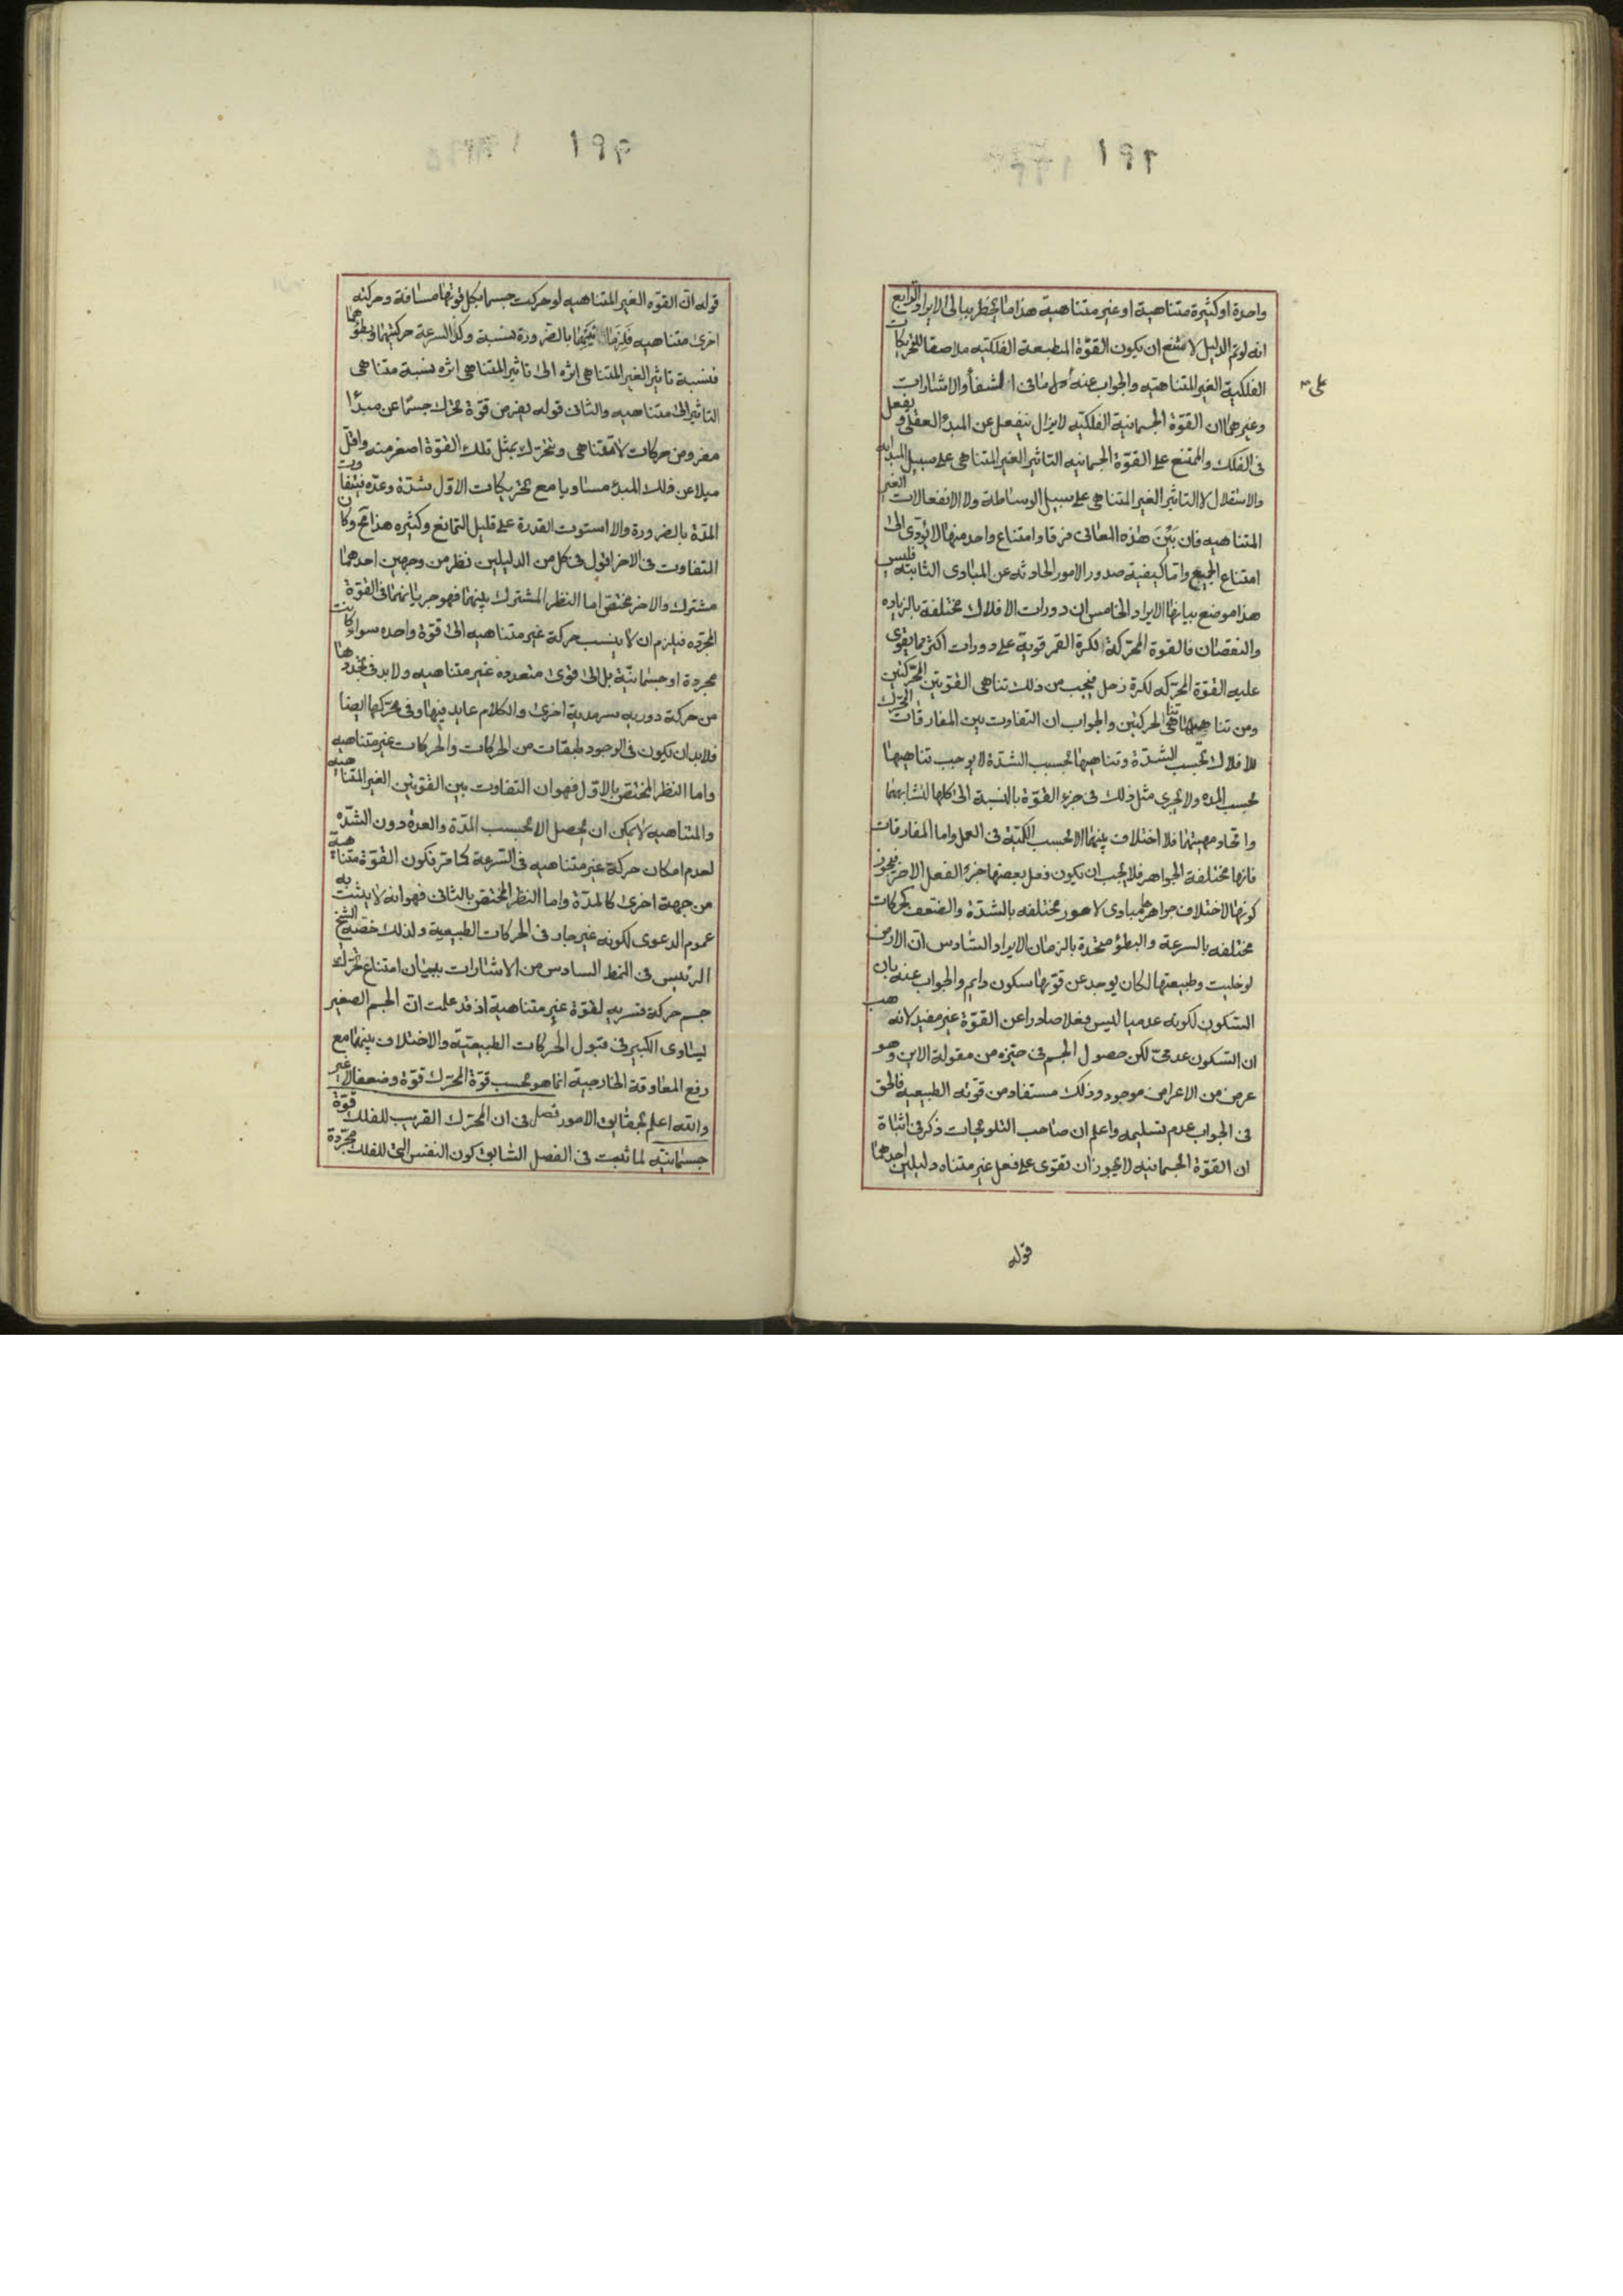 ١٩٢
واحدة او كثيرة متناهية او غير متناهية هذا ما يخطر ببالى الايراد الرابع
انه لو تم الدليل لامتنع ان يكون القوّة المنطبعة الفلكيه ملاصقا للتحريكات
الفلكية الغير المتناهيّه والجواب عنه على ما فى الشفأ والاشارات
على
وغيرهما ان القوّة الجسمانية الفلكيّه لا يزال ينفعل عن المبدء العقلى ويفعل
فى الفلك والممتنع على القوّة الجسمانيه التاثير الغير المتناهى على سبيل المبدايه
والاستقلال لا التاثير الغير المتناهى على سبيل الوساطة ولا الانفعالات الغير
المتناهيه فان بَيْنَ هذه المعانى فرقا وامتناع واحد منها لا يؤدّى الى
امتناع الجميع واما كيفية صدور الامور الحادثه عن المبادى الثابته فليس
هذا موضع بيانها الايراد الخامس ان دورات الافلاك مختلفة بالزياده
والنقصان فالقوة المحرّكة لكرة القمر قوية على دورات اكثر مما يقوى
عليه القوّة المحرّكه لكرة زحل فيجب من ذلك تناهى القوّيتين المحرّكتين
ومن تناهيهما تناهى الحركتين والجواب ان التفاوت بين المفارقات المحرّك
للافلاك بحسب الشدّة وتناهيها بحسب الشدّة لا يوجب تناهيها
بحسب المده ولا يجرى مثل ذلك فى جزء القوّة بالنسبة الى كلها لتشابههما
واتحاد مهيتهما فلا اختلاف بينهما الا بحسب الكمّية فى العمل واما المفارقات
فانها مختلفة الجواهر فلا يجب ان يكون فعل بعضها جزء الفعل الاخر فيجوز
كونها لاختلاف جواهرها مبادى لامور مختلفه بالشدّة والضعف كحركات
مختلفه بالسرعة والبطؤ متحدة بالزمان الايراد السّادس انّ الارض
لو خليت وطبيعتها لكان يوجد عن قوّتها سكون دايم والجواب عنه بان
السّكون لكونه عدميا ليس فعلا صادرا عن القوّة غير مفيد لانه هب
ان السّكون عدمىّ لكن حصول الجسم فى حيّزه من مقولة الاين وهو
عرض من الاعراض موجود وذلك مستفاد من قوّته الطبيعيه فالحق
فى الجواب عدم تسليمه واعلم ان صاحب التلويحات ذكر فى اثباة
ان القوّة الجسمانيه لا يجوز ان تقوى على فعل غير متناه دليلين احدهما
قوله
١٩٩
قوله انّ القوّه الغير المتناهيه لو حركت جسما بكل قوتها مسافة وحركته
اخرى متناهيه بالضرورة نسبة وكذا لسرعة حركتيهما وبطؤهما
فنسبة تاثير الغير المتناهى اثره الى تاثير المتناهى اثره نسبة متناهى
التاثير الى متناهيه والثانى قوله يفرض قوّة تحرّك جسمًا عن مبدءٍ
مفروض حركات لا تتناهى وتحرّك بمثل تلك القوّة اصغر منه واقلّ
ميلا عن ذلك المبدء مساويا مع تحريكات الاوّل شدّة وعدّه فيتفاوت
المدّة بالضرورة والا استوت القدرة على قليل التمانع وكثيره هذا مح وكان
المتفاوت فى الاخر اقول فى كل من الدليلين نظر من وجهين احدهما
مشترك والاخر مختصّ اما النظر المشترك بينهما فهو جريانهما فى القوّة
المجرّده فيلزم ان لا ينسب حركة غير متناهيه الى قوّة واحده سواء كانت
مجردة او جسمانيّة بل الى قوى متعدده غير متناهيه ولا بد فى تجدّدها
من حركة دوريه سرمدية اخرى والكلام عايد فيها وفى محرّكها ايضا
فلابد ان يكون فى الوجود طبقات من الحركات والحركات غير متناهيه
واما النظر المختص بالاوّل فهو ان التفاوت بين القوّتين الغير المتناهيه
والمتناهيه لا يمكن ان يحصل الا بحسب المدّة والعدة دون الشدّه
لعدم امكان حركة غير متناهيه فى السّرعة كما مرّ فكون القوّة متناهية
من جهة اخرى كالمدّة واما النظر المختص بالثانى فهو انه لا يثبت به
عموم الدعوى لكونه غير جار فى الحركات الطبيعية ولذلك خصّه الشيخ
الرئيس فى النمط السادس من الاشارات ببيان امتناع تحرّك
جسم حركة قسريه لقوّة غير متناهية اذ قد علمت انّ الجسم الصغير
يساوى الكبير فى قبول الحركات الطبيعيّة والاختلاف بينهما مع
رفع المعاوقة الخارجية انما هو بحسب قوّة المحرّك قوّة وضعفا لا غير
والله اعلم بحقايق الامور فصل فى ان المحرّك القريب للفلك قوّة
جسمانيّه لما ثبت فى الفصل السّابق كون النفس التى للفلك مجرّدة